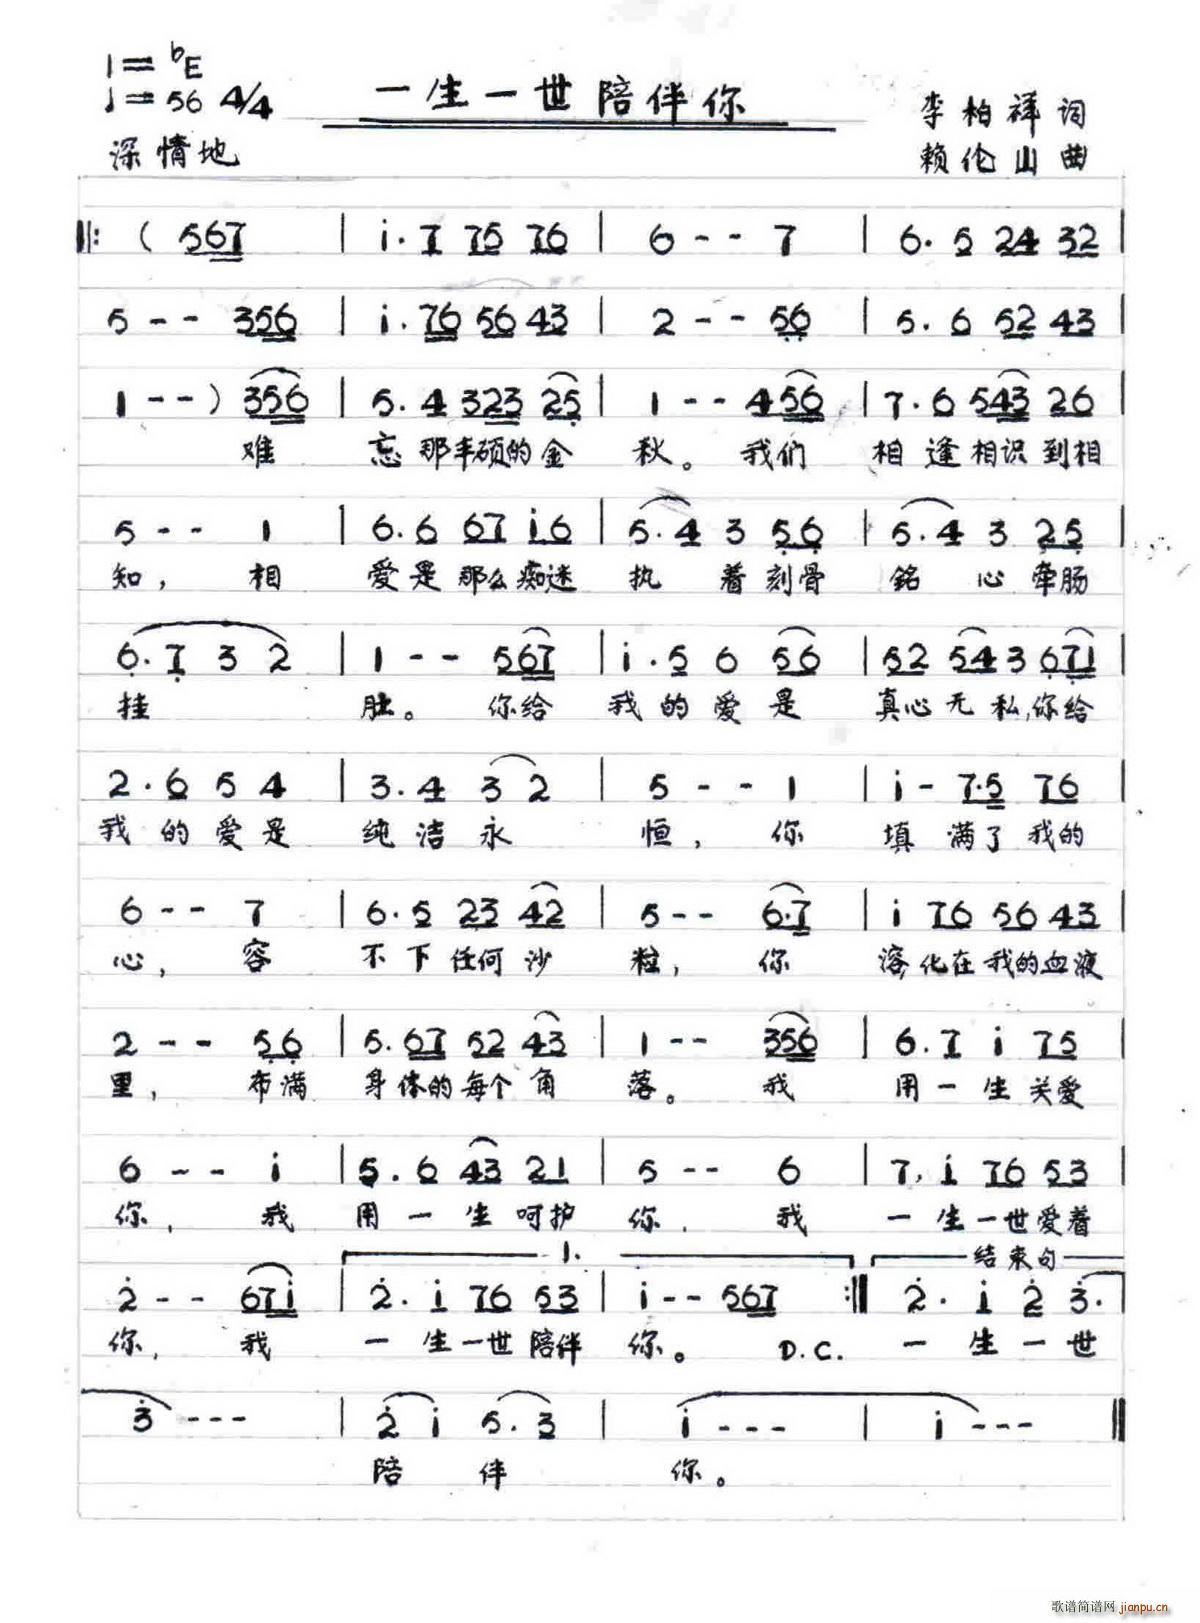 1=♭E
♩=56 4/4
一生一世陪伴你
李柏祥词
深情地
赖伦山曲
‖: ( 567 | i·7 75 76 | 6 - - 7 | 6·5 24 32 |
5 - - 356 | i·76 56 43 | 2 - - 56 | 5·6 52 43 |
1 - - ) 356 | 5·4 323 25 | 1 - - 456 | 7·6 543 26 |
难 忘那丰硕的金 秋。我们 相逢相识到相
5 - - 1 | 6·6 67 i6 | 5·4 3 56 | 5·4 3 25 |
知，相 爱是那么痴迷 执着刻骨 铭心牵肠
6·7 3 2 | 1 - - 567 | i·5 6 56 | 52 543 671 |
挂 肚。你给 我的爱是 真心无私,你给
2·6 5 4 | 3·4 3 2 | 5 - - 1 | i - 7·5 76 |
我的爱是 纯洁永 恒，你 填满了我的
6 - - 7 | 6·5 23 42 | 5 - - 6·7 | i 76 56 43 |
心，容 不下任何沙 粒，你 溶化在我的血液
2 - - 56 | 5·67 52 43 | 1 - - 356 | 6·7 i 75 |
里，布满 身体的每个角 落。我 用一生关爱
6 - - i | 5·6 43 21 | 5 - - 6 | 7·i 76 53 |
你，我 用一生呵护 你，我 一生一世爱着
1. 结束句
2 - - 67i | 2·i 76 53 | i - - 567 :‖ 2·i 2 3·
你，我 一生一世陪伴 你。D.C. 一生一世
3 - - - | 2 i 5·3 | i - - - | i - - - ‖
陪伴 你。
歌谱简谱网
jianpu.cn